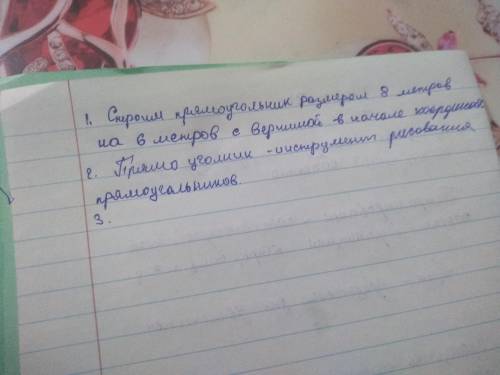 1. Строим прямоугольник размером 8 метров
на 6 метров с вершиной в начале координат
2. Прямо уголник - инструмент рисования
прямоугальников.
3.